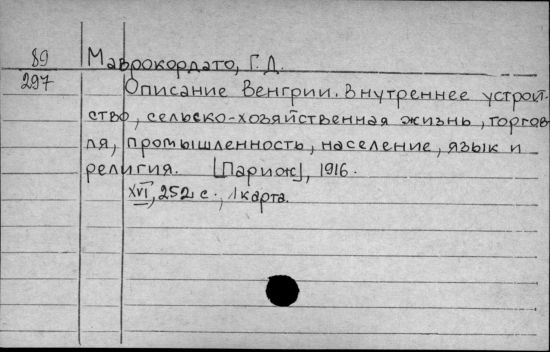 89 Маврокордато, Г.Д.
297 Описание Венгрии. Внутреннее устрой-
ство, сельско-хозяйственная жизнь, торгов-
ля, промышленность, население, язык и
религия. [Париж], 1916.
XVI, 252 с., 1 карта.